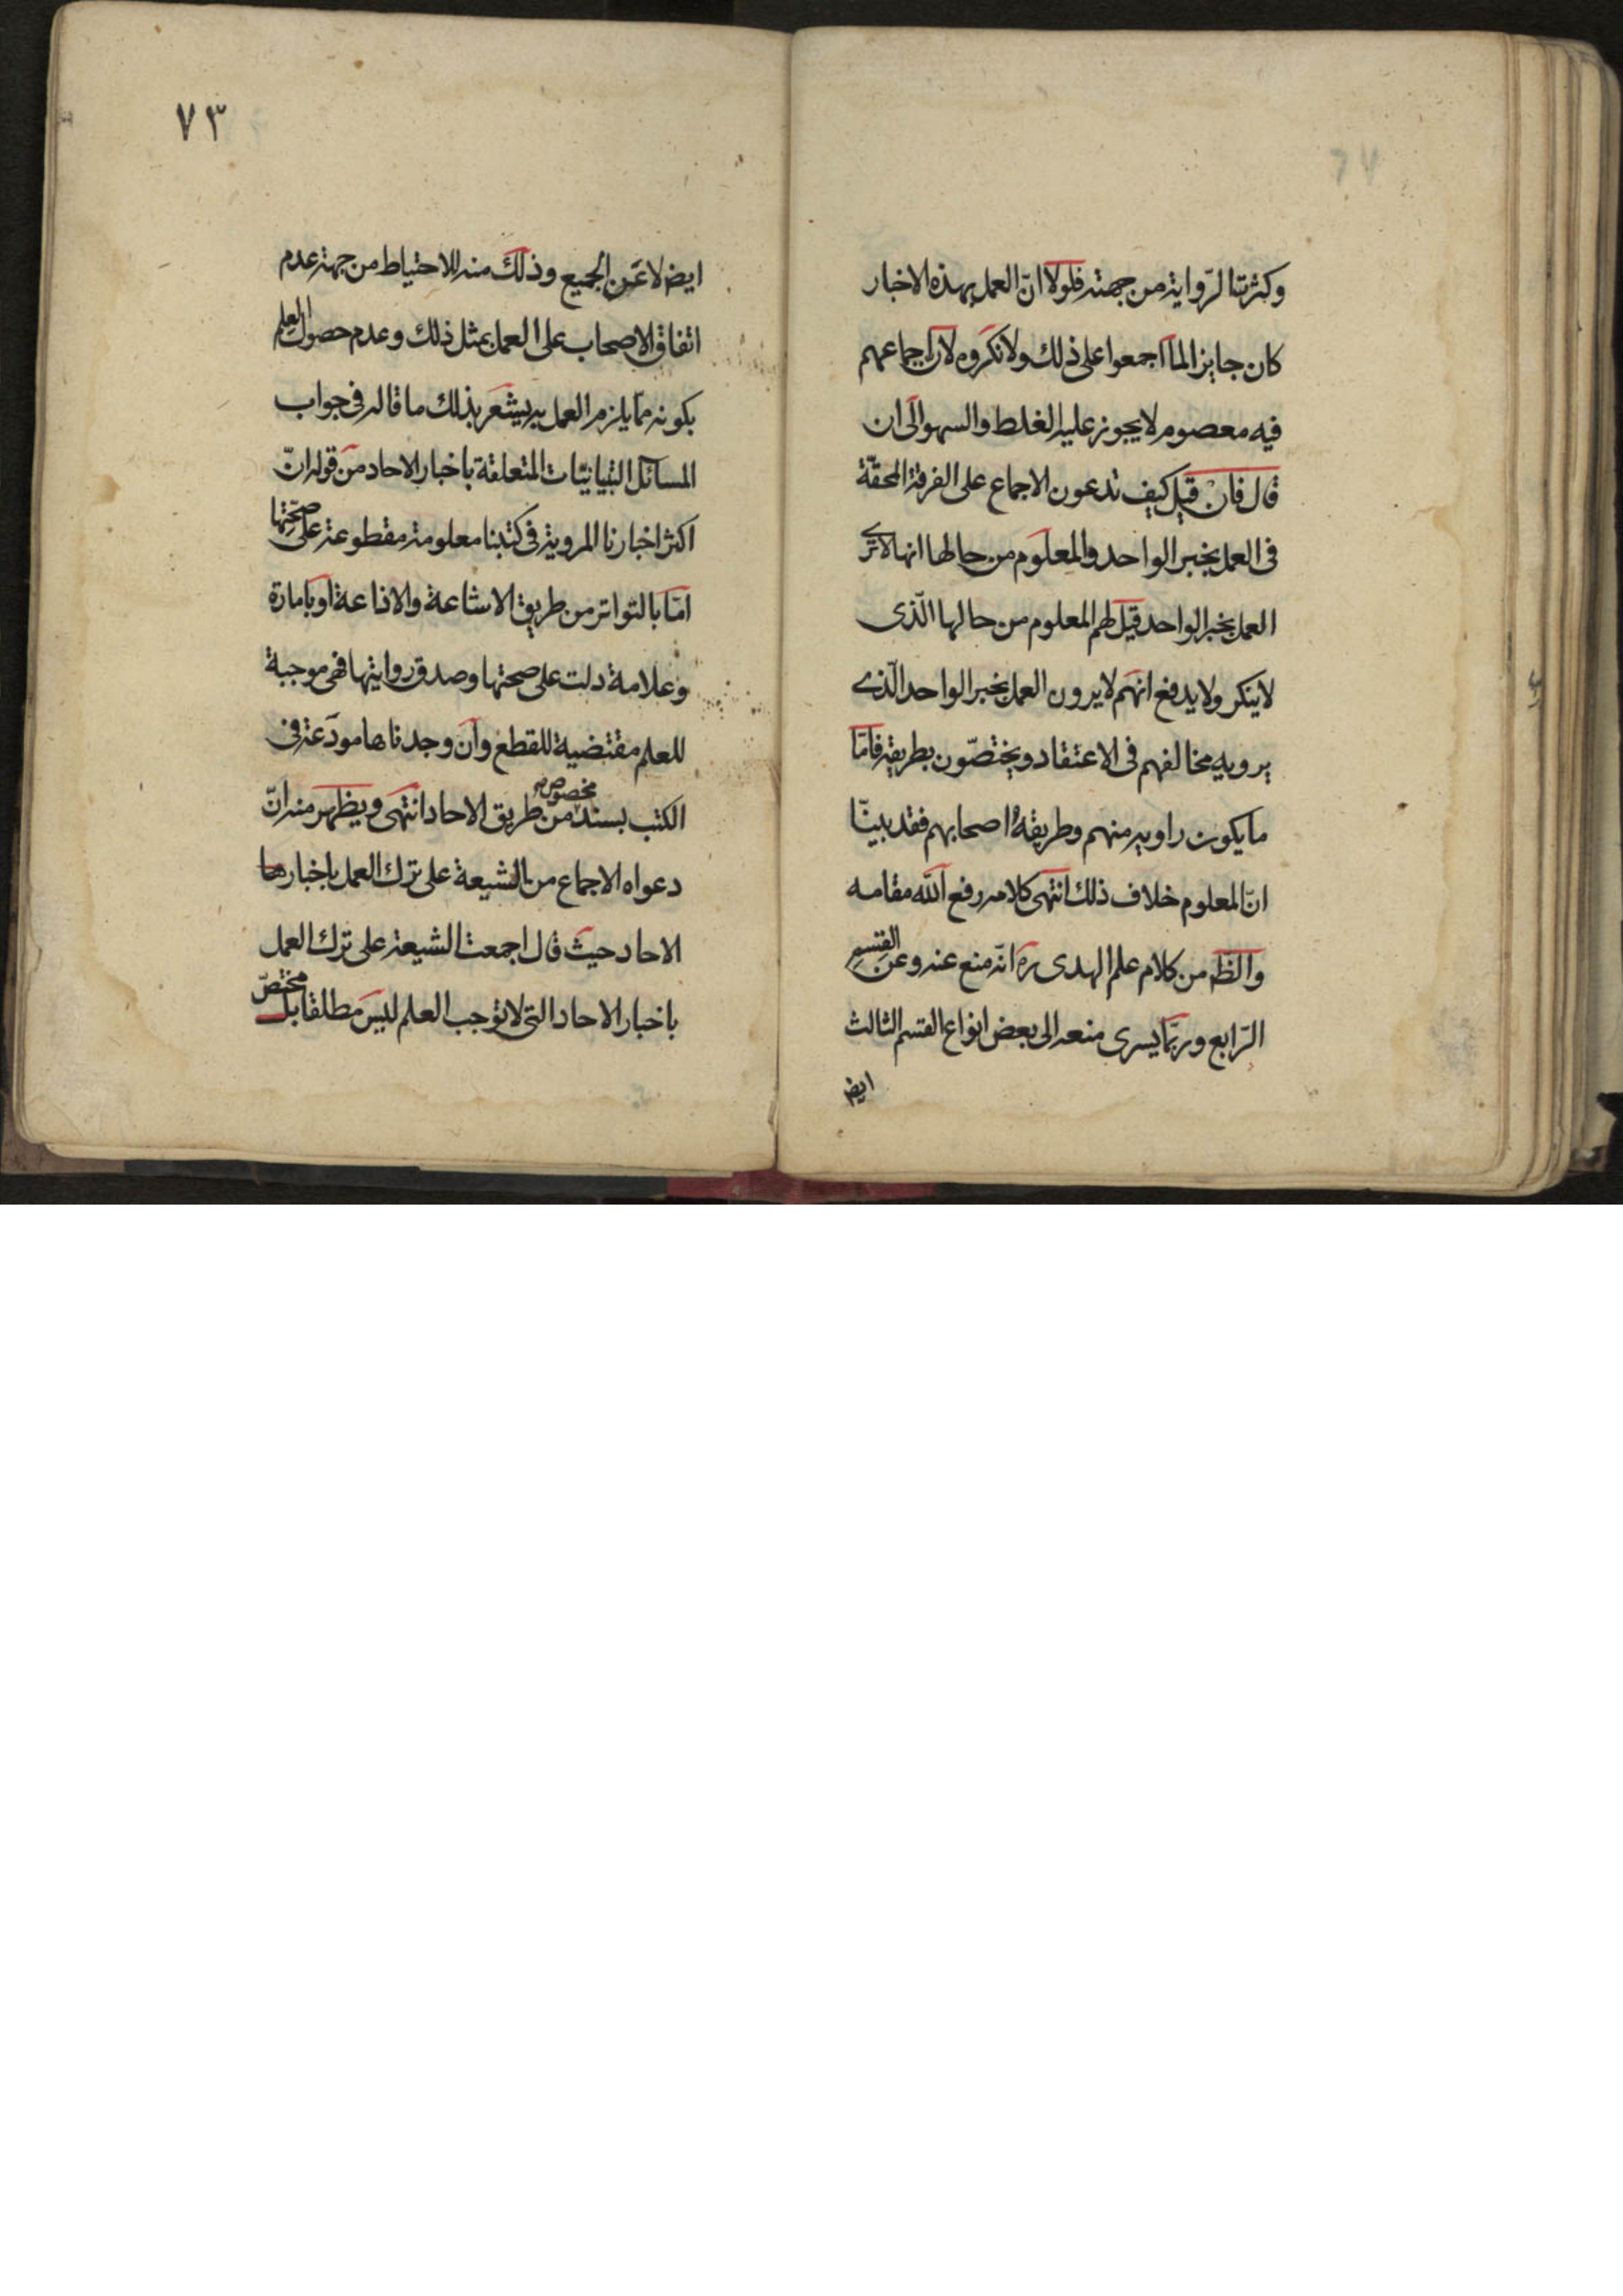 وكثرتنا لرّواية من جهته فلولا انّ العمل بهذه الاخبار
كان جايزا لما اجمعوا على ذلك ولانكروه لان اجماعهم
فيه معصوم لا يجوز عليه الغلط والسهو الى ان
قال فان قيل كيف تدعون الاجماع على الفرقة المحقّة
فى العمل بخبر الواحد والمعلوم من حالها انها لا ترى
العمل بخبر الواحد قيل لهم المعلوم من حالها الّذى
لا ينكر ولا يدفع انهم لا يرون العمل بخبر الواحد الّذى
يرويه مخالفهم فى الاعتقاد ويختصّون بطريقه فامّا
ما يكون راويه منهم وطريقهُ اصحابهم فقد بينّا
انّ المعلوم خلاف ذلك انتهى كلامه رفع الله مقامه
والظ من كلام علم الهدى ره انّه منع عنه وعن القسم
الرّابع وربّما يسرى منعه الى بعض انواع القسم الثالث
ايض
٧٣
ايض لا عن الجميع وذلك منه للاحتياط من جهة عدم
اتفاق الاصحاب على العمل بمثل ذلك وعدم حصول العلم
بكونه ممّا يلزم العمل به يشعر بذلك ما قاله فى جواب
المسائل التبانيّات المتعلقة باخبار الاحاد من قوله انّ
اكثر اخبارنا المروية فى كتبنا معلومة مقطوعة على صحّتها
امّا بالتواتر من طريق الاشاعة والاذاعة او بامارة
وعلامة دلت على صحتها وصدق روايتها فهى موجبة
للعلم مقتضية للقطع وان وجدناها مودَعة فى
الكتب بسند مخصوص من طريق الاحاد انتهى ويظهر منه انّ
دعواه الاجماع من الشيعة على ترك العمل باخبارها
الاحاد حيث قال اجمعت الشيعة على ترك العمل
باخبار الاحاد التى لا توجب العلم ليس مطلقا بل مختصّ